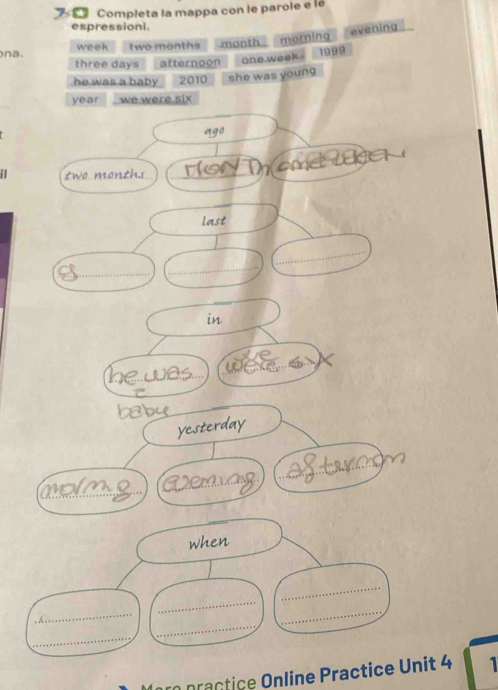 Completa la mappa con le parole e le
espressioni.
week two months month morning evening
three days afternoon one week 1999
he was a baby 2010 she was young
year we were six
ona.
ago
il
two months MONTH one week
last
in
he was were six
a
baby
yesterday
morning evening afternoon
when
More practice Online Practice Unit 4